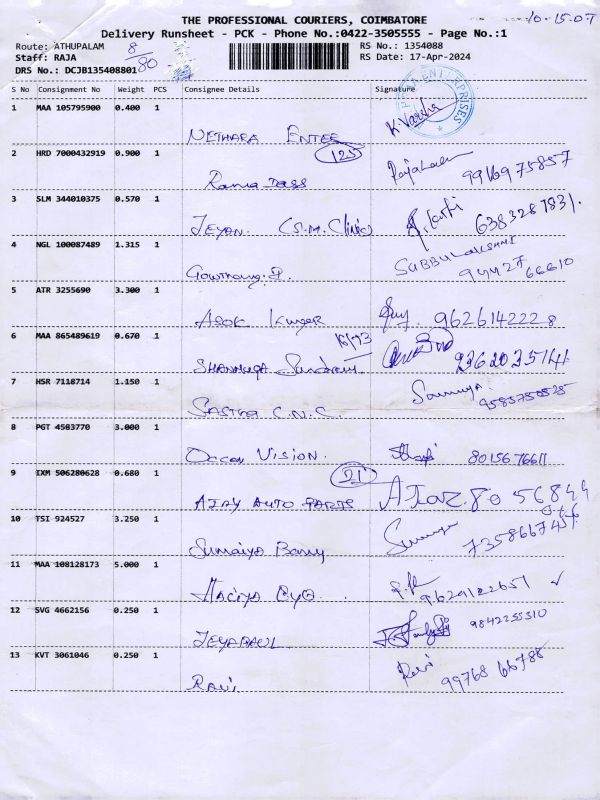 THE PROFESSIONAL COURIERS, COIMBATORE
10-15.07
Delivery Runsheet - PCK - Phone No.:0422-3505555 - Page No.:1
Route: ATHUPALAM 8/80 RS No.: 1354088
Staff: RAJA RS Date: 17-Apr-2024
DRS No.: DCJB135408801
S No Consignment No Weight PCS Consignee Details Signature
1 MAA 105795900 0.400 1 NETHARA ENTER K. Varsha
ENTERPRISES
2 HRD 7000432919 0.900 1 Rama Dass 9916975857
3 SLM 344010375 0.570 1 JEYON. (S.M. Clinic) 6383287831.
4 NGL 100087489 1.315 1 SUBBULAKSHMI
94427 66610
5 ATR 3255690 3.300 1 ASOK Kumar 9626142228
6 MAA 865489619 0.670 1 SHANMUGA Sundaram 9362035141
7 HSR 7118714 1.150 1 SASTHA C.N.C. Soumya
8 PGT 4583770 3.000 1 Ocean VISION. 8015676611
9 IXM 506280628 0.680 1 AJAY AUTO PARTS
10 TSI 924527 3.250 1 Sumaiya
11 MAA 108128173 5.000 1 9629122651 ✓
12 SVG 4662156 0.250 1 JEYAPAUL 9842255310
13 KVT 3061046 0.250 1 RAVI Ravi 99768 66788